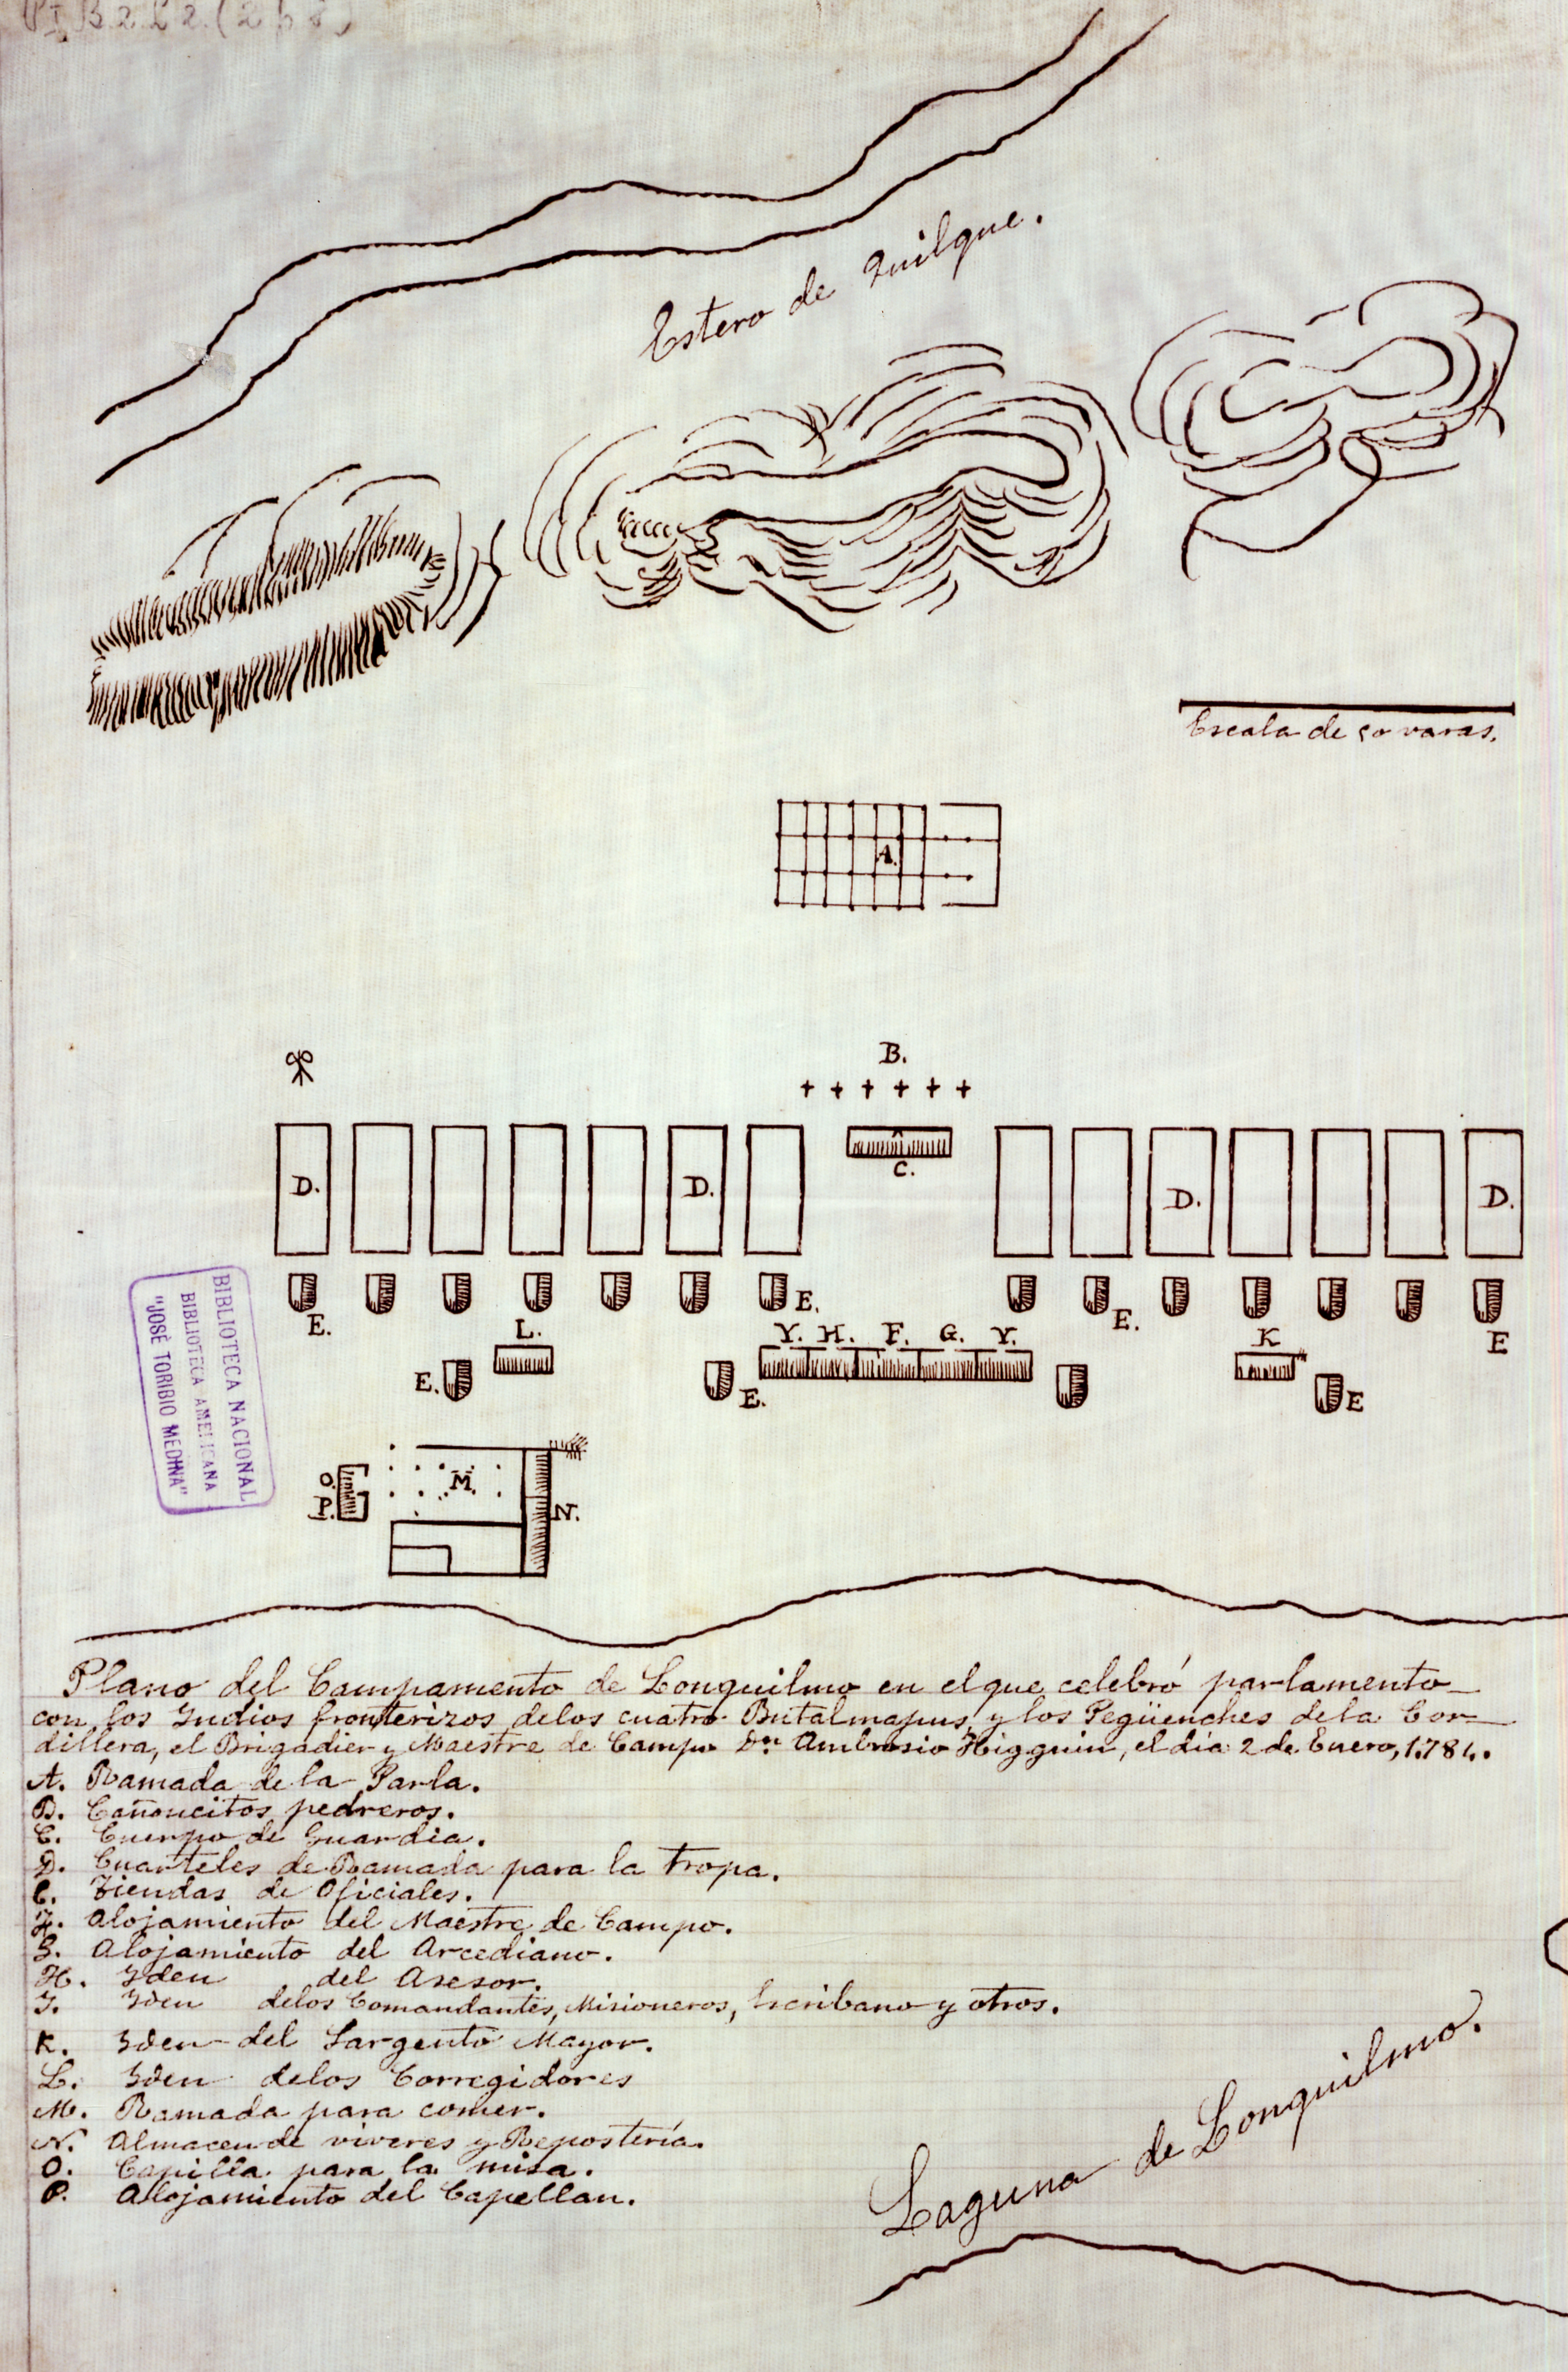 Estero de Quilque.
Escala de 50 varas.
A.
B.
C.
D. D. D. D.
E. E. E. E
L. Y. H. F. G. Y. K
E. E. E
O. M.
P. N.
BIBLIOTECA NACIONAL
BIBLIOTECA AMERICANA
"JOSÉ TORIBIO MEDINA"
Plano del Campamento de Lonquilmo en el que celebró parlamento
con los Yndios fronterizos delos cuatro Butalmapus, y los Pegüenches dela Cor-
dillera, el Brigadier y Maestre de Campo Dn Ambrosio Higguin, el dia 2 de Enero, 1.784.
A. Ramada de la Parla.
B. Cañoncitos pedreros.
C. Cuerpo de Guardia.
D. Cuarteles de Ramada para la tropa.
E. Tiendas de Oficiales.
F. Alojamiento del Maestre de Campo.
G. Alojamiento del Arcediano.
H. Yden del Asesor.
Y. Yden delos Comandantes, Misioneros, Escribano y otros.
K. Yden del Sargento Mayor.
L. Yden delos Corregidores
M. Ramada para comer.
N. Almacen de viveres y Repostería.
O. Capilla para la misa.
P. Alojamiento del Capellan.
Laguna de Lonquilmo.